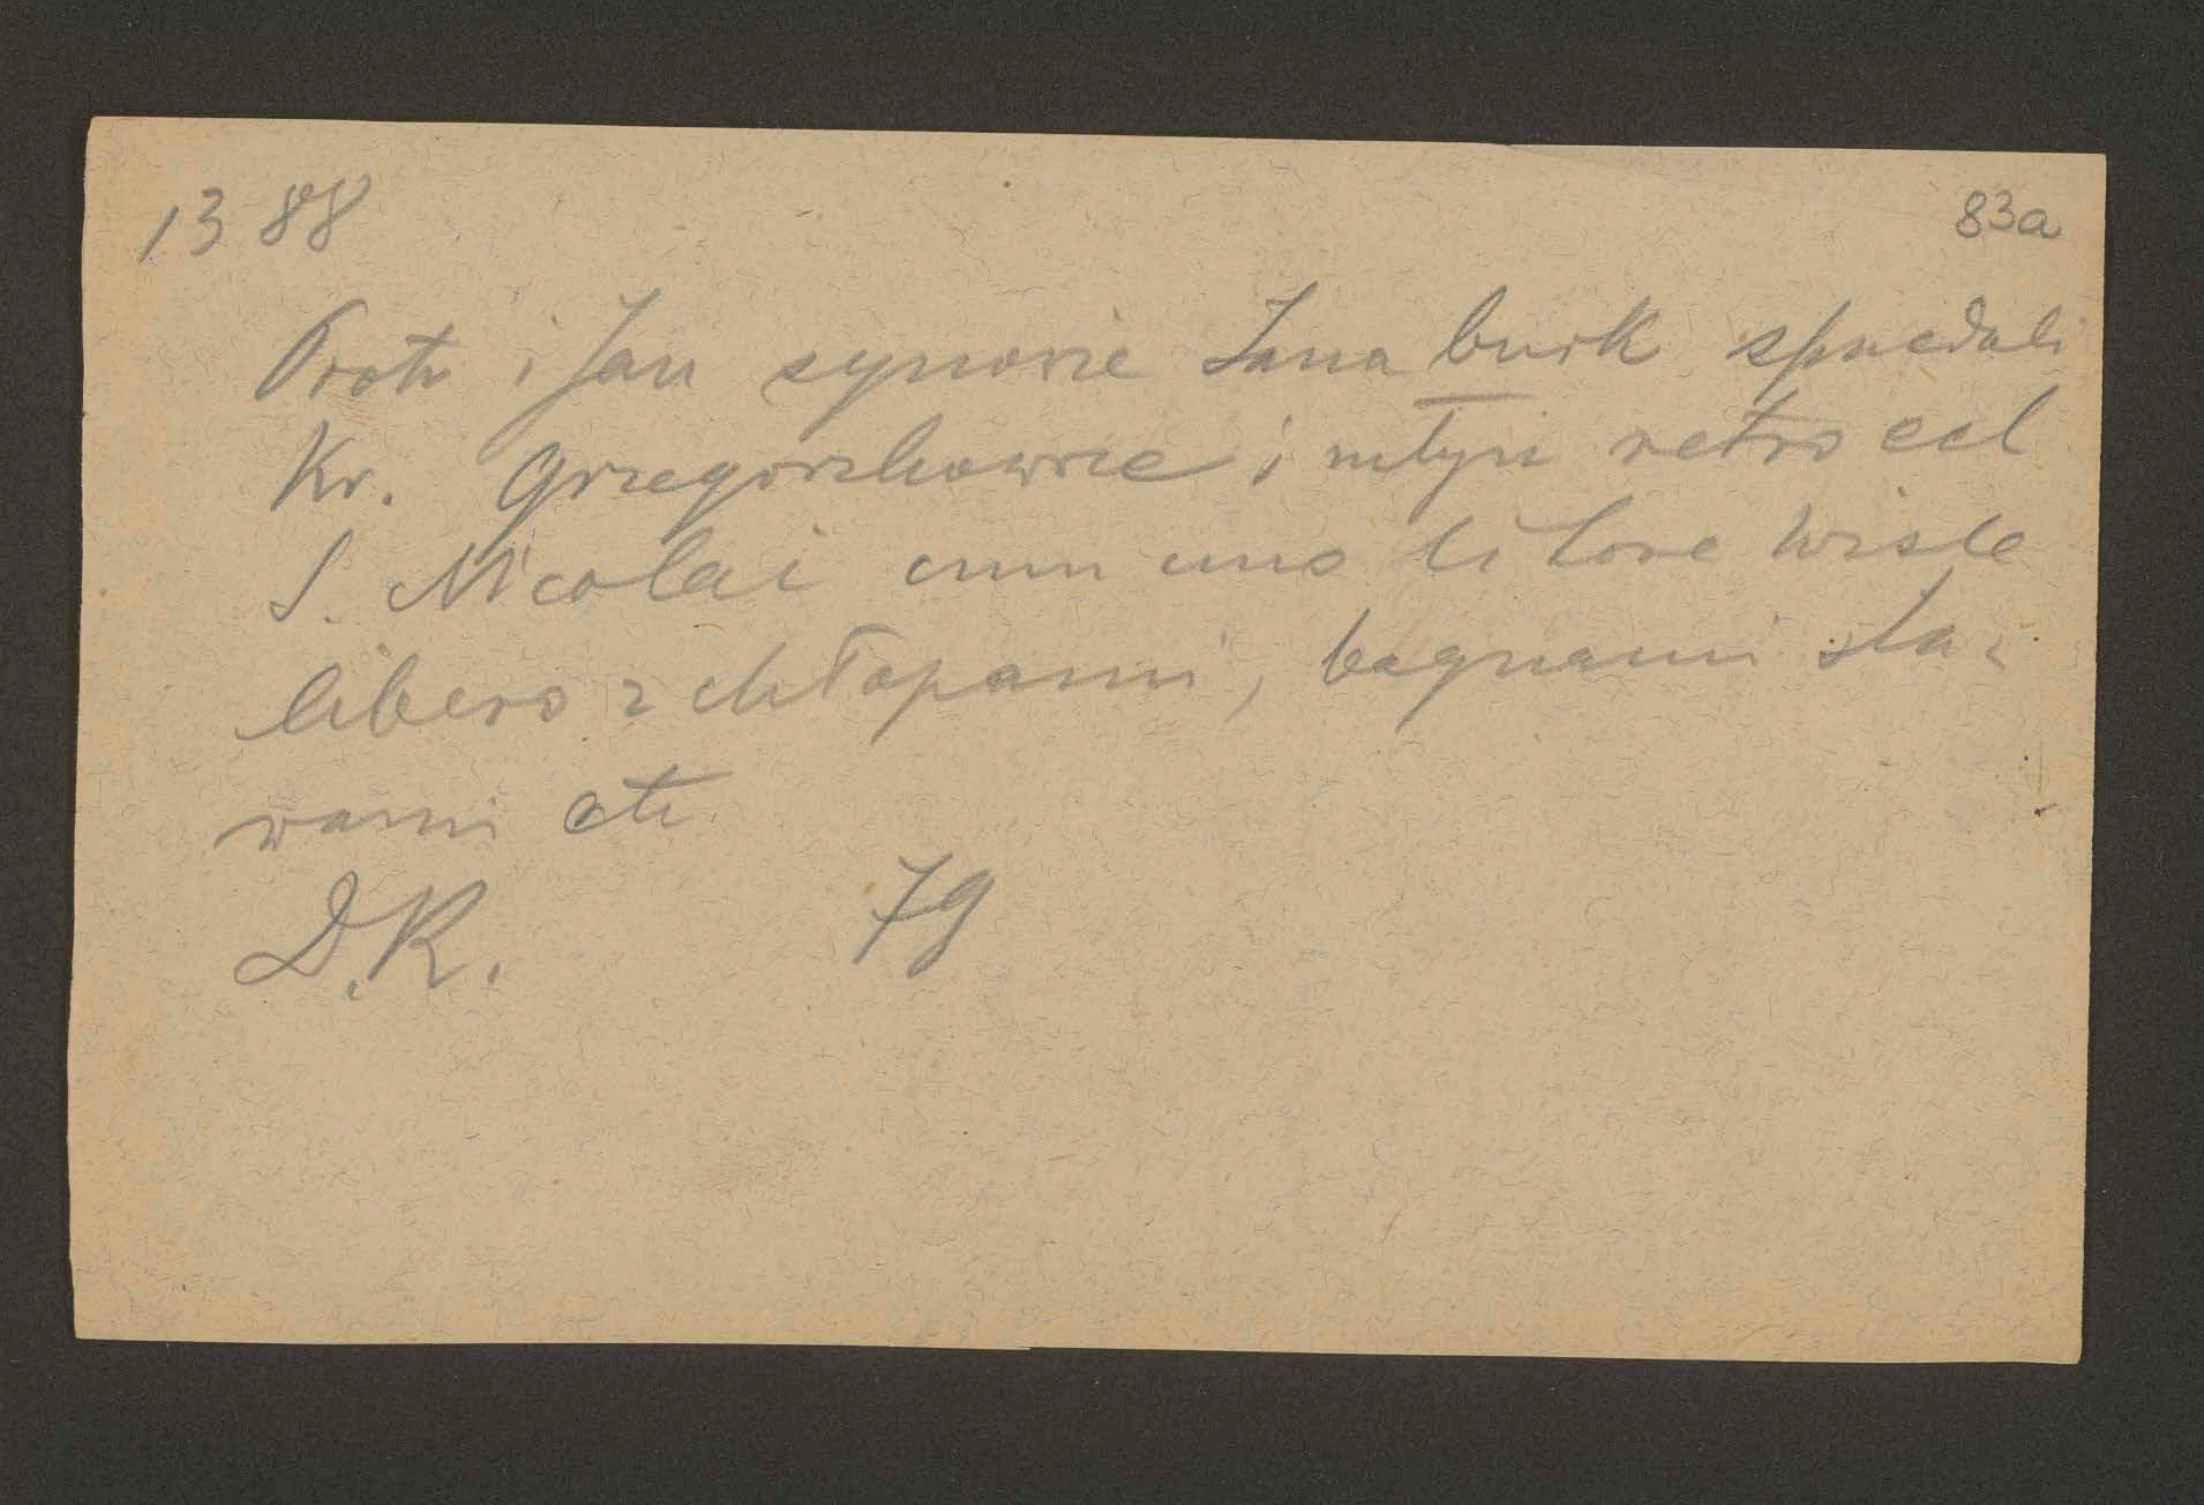 1388 83a
Piotr i Jan synowie Jana burk sprzedali
Kr. Grzegorzkowice i młyn retro eccl
S. Nicolai cum uno litore Wisle
libero z chłopami, bagnami sta-
wami etc
D.R. 79